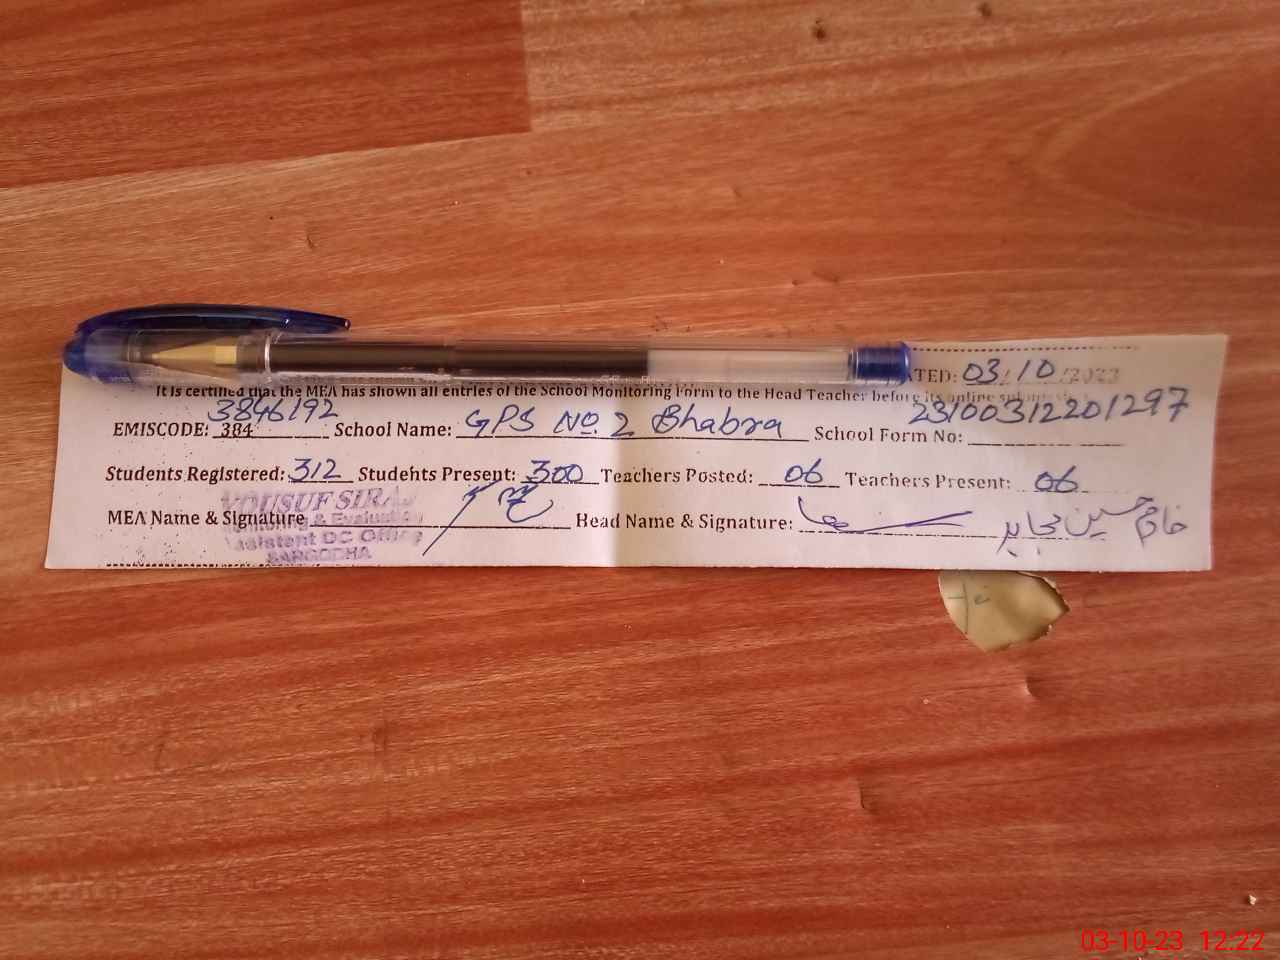 DATED: 03/10/2023
It is certified that the MEA has shown all entries of the School Monitoring Form to the Head Teacher before its online
EMISCODE: 384 3846192 School Name: GPS No. 2 Bhabra School Form No: 23100312201297
Students Registered: 312 Students Present: 300 Teachers Posted: 06 Teachers Present: 06
MEA Name & Signature Head Name & Signature: خادم حسین
YOUSUF SIRAJ
Monitoring & Evaluation
Assistent DC Office
SARGODHA
03-10-23 12:22